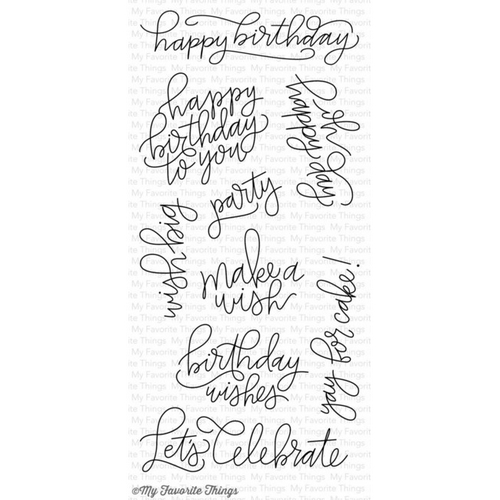 happy birthday
happy
birthday
to you
oh happy
day
party
wish big
make a
wish
yay for cake!
birthday
wishes
Let's Celebrate
©My Favorite Things